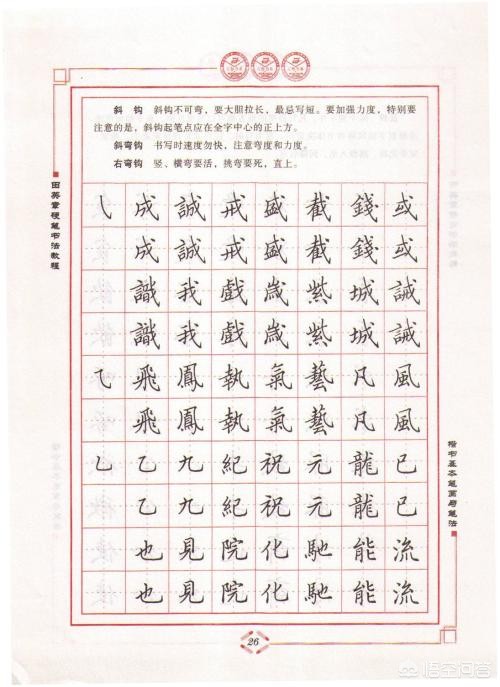 斜 钩 斜钩不可弯，要大胆拉长，最忌写短。要加强力度，特别要
注意的是，斜钩起笔点应在全字中心的正上方。
斜弯钩 书写时速度勿快，注意弯度和力度。
右弯钩 竖、横弯要活，挑弯要死，直上。
田英章硬笔书法教程
㇂ 成 誠 戒 盛 截 錢 或
成 誠 戒 盛 截 錢 或
識 我 戲 歲 紫 城 誡
識 我 戲 歲 紫 城 誡
⺄ 飛 鳳 執 氣 藝 凡 風
飛 鳳 執 氣 藝 凡 風
乚 乙 九 紀 祝 元 龍 已
乙 九 紀 祝 元 龍 已
也 見 院 化 馳 能 流
也 見 院 化 馳 能 流
楷书基本笔画与笔法
26
悟空问答